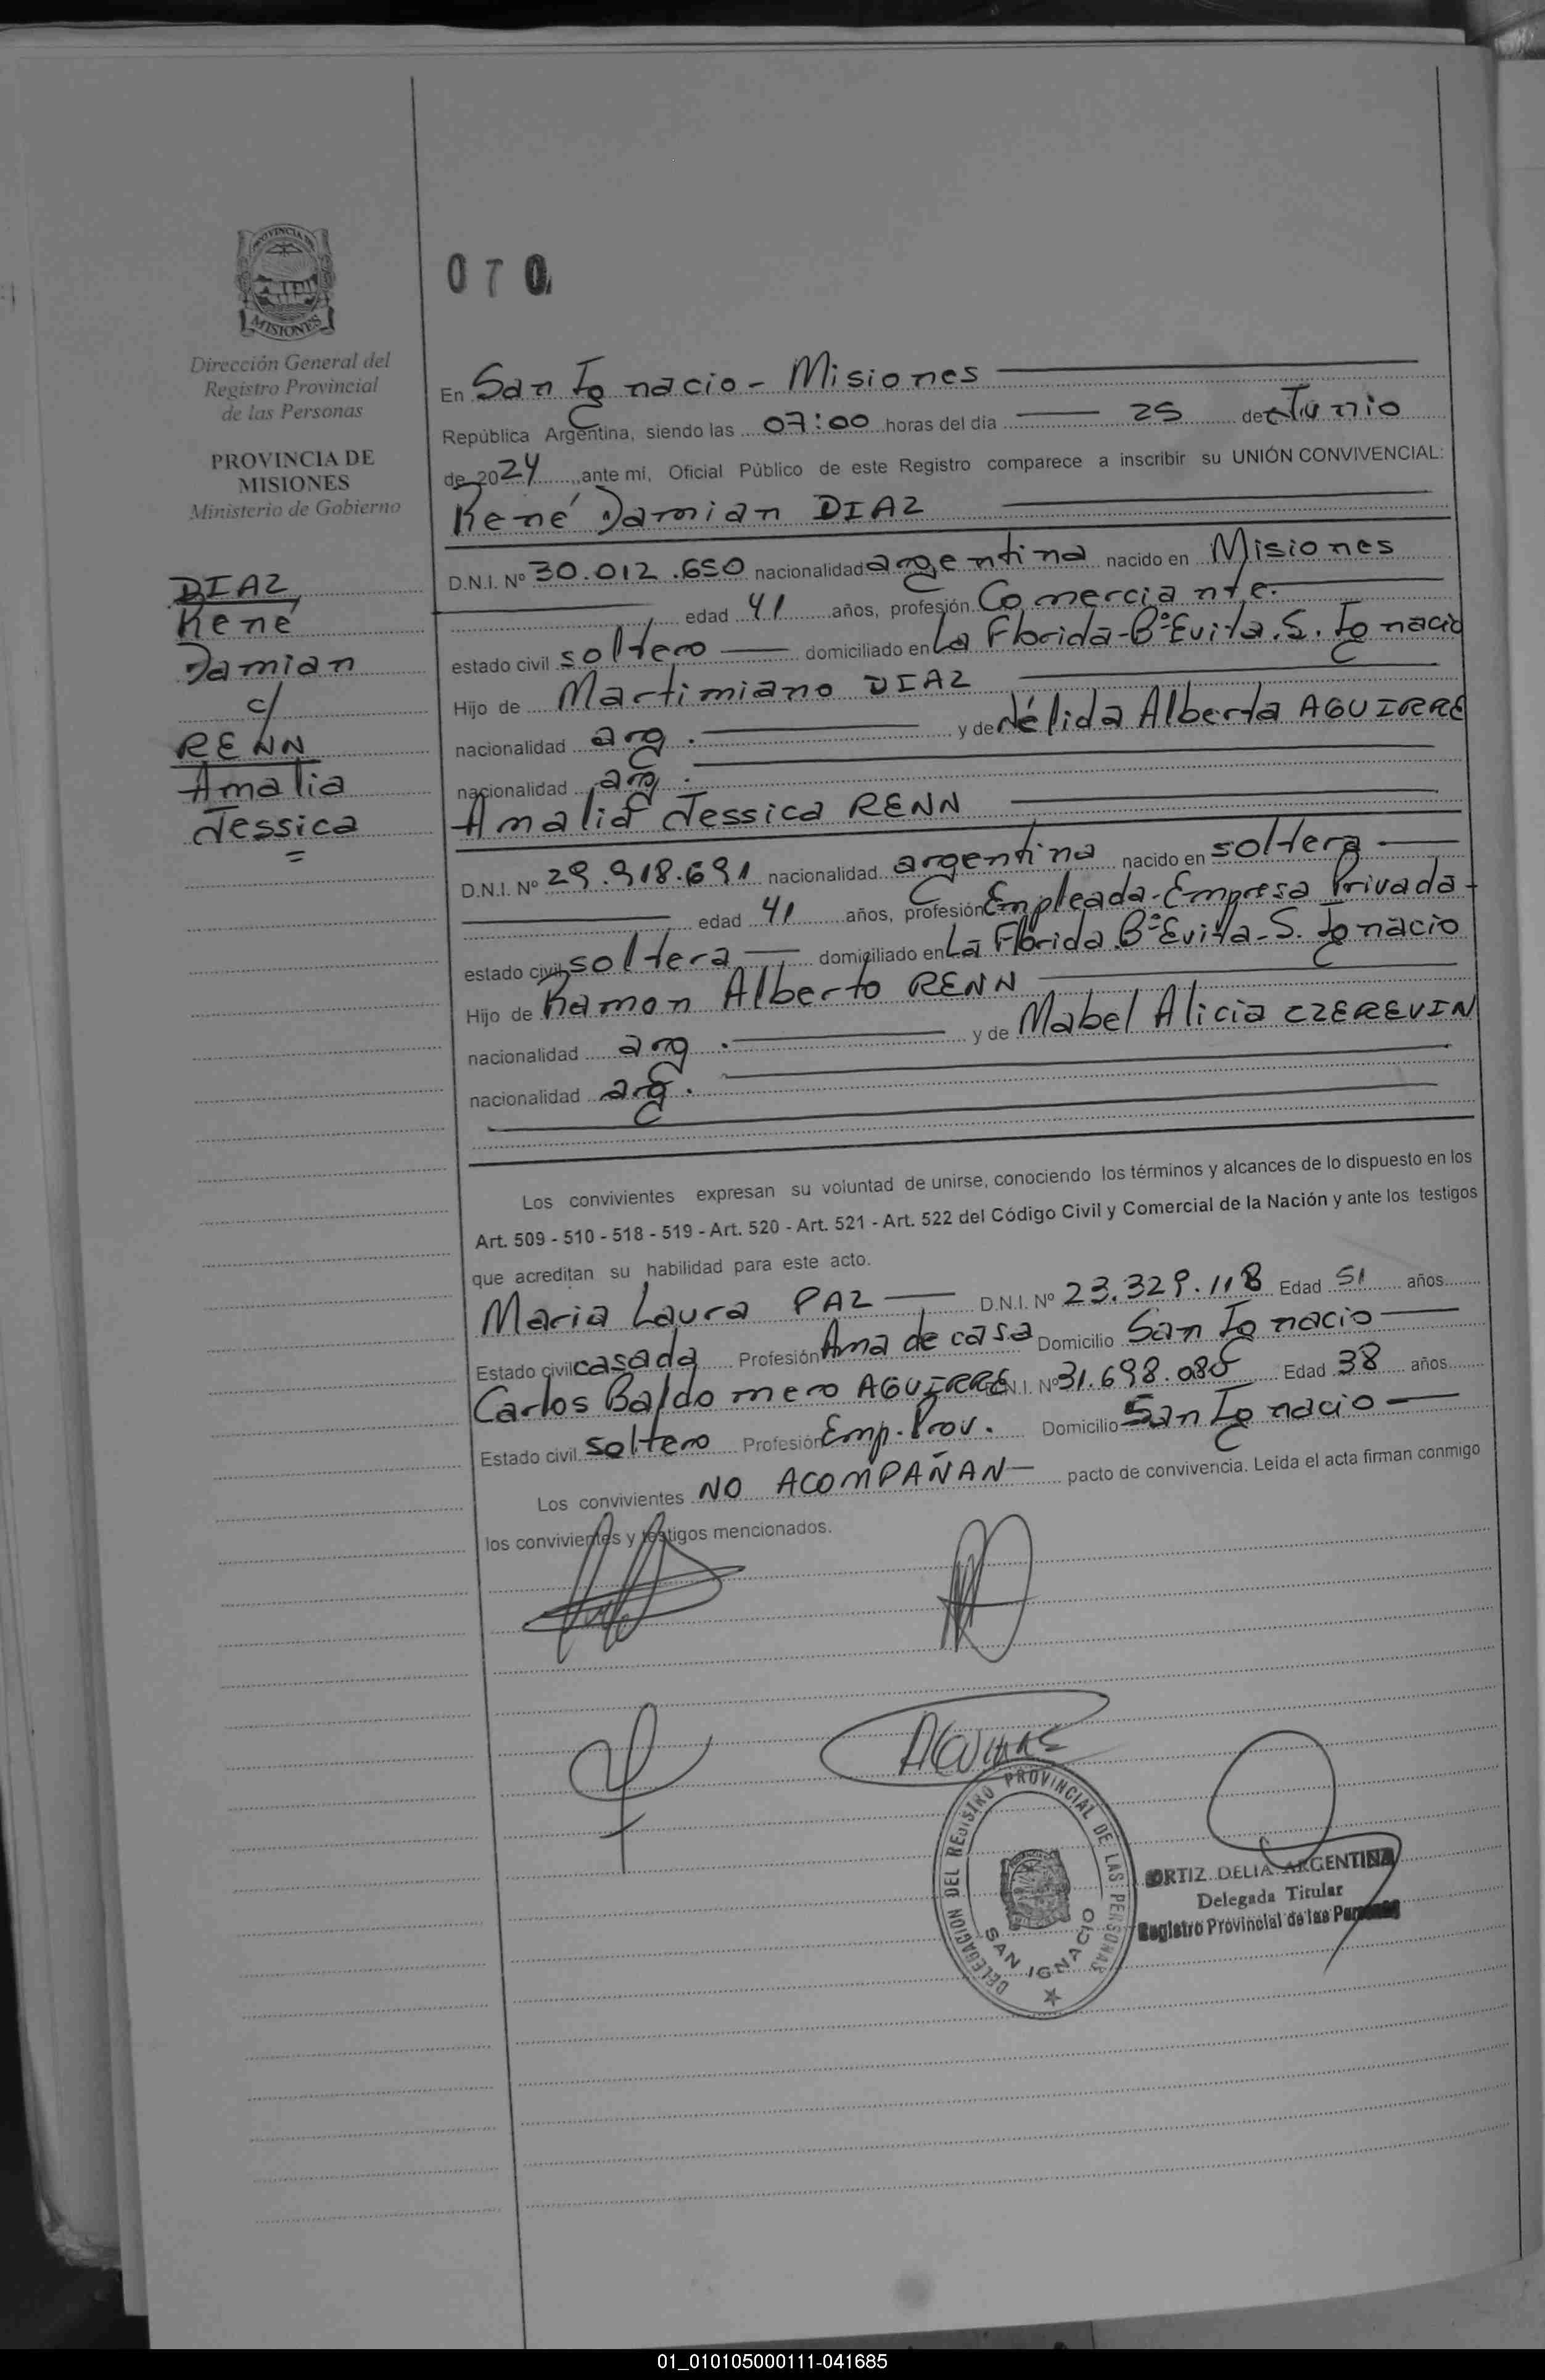 PROVINCIA DE
MISIONES
Dirección General del
Registro Provincial
de las Personas
PROVINCIA DE
MISIONES
Ministerio de Gobierno
DIAZ
René
Damian
c/
RENN
Amalia
Jessica
=
070
En San Ignacio - Misiones
República Argentina, siendo las 07:00 horas del día 25 de Junio
de 2024, ante mi, Oficial Público de este Registro comparece a inscribir su UNIÓN CONVIVENCIAL:
René Damian DIAZ
D.N.I. Nº 30.012.650 nacionalidad argentina nacido en Misiones
edad 41 años, profesión Comerciante.
estado civil soltero domiciliado en La Florida-Bº Evita. S. Ignacio
Hijo de Martimiano DIAZ
nacionalidad arg. y de Nélida Alberta AGUIRRE
nacionalidad arg.
Amalia Jessica RENN
D.N.I. Nº 29.918.691 nacionalidad argentina nacido en soltera
edad 41 años, profesión Empleada-Empresa Privada-
estado civil soltera domiciliado en La Florida. Bº Evita-S. Ignacio
Hijo de Ramon Alberto RENN
nacionalidad arg. y de Mabel Alicia CZEREVIN
nacionalidad arg.
Los convivientes expresan su voluntad de unirse, conociendo los términos y alcances de lo dispuesto en los
Art. 509 - 510 - 518 - 519 - Art. 520 - Art. 521 - Art. 522 del Código Civil y Comercial de la Nación y ante los testigos
que acreditan su habilidad para este acto.
Maria Laura PAZ D.N.I. Nº 23.329.118 Edad 51 años
Estado civil casada Profesión Ama de casa Domicilio San Ignacio
Carlos Baldomero AGUIRRE D.N.I. Nº 31.698.085 Edad 38 años
Estado civil soltero Profesión Emp. Prov. Domicilio San Ignacio
Los convivientes NO ACOMPAÑAN pacto de convivencia. Leída el acta firman conmigo
los convivientes y testigos mencionados.
DELEGACION DEL REGISTRO PROVINCIAL DE LAS PERSONAS
SAN IGNACIO
ORTIZ DELIA ARGENTINA
Delegada Titular
Registro Provincial de las Personas
01_010105000111-041685